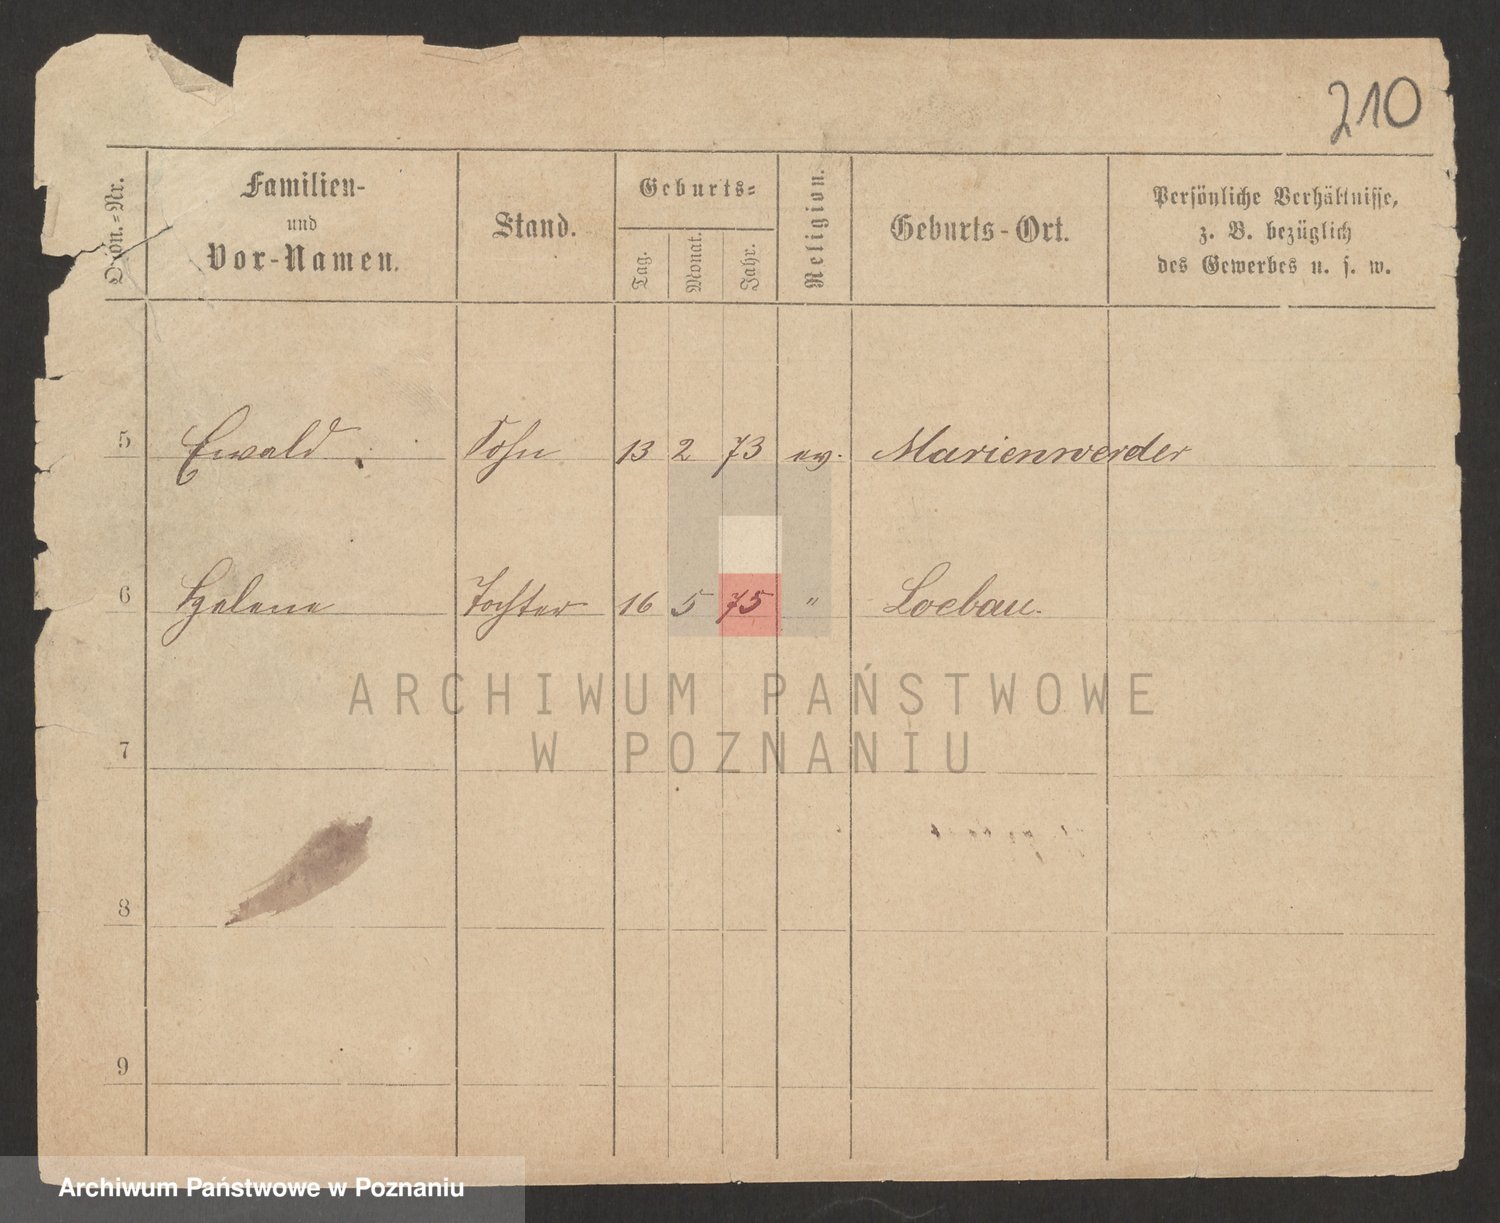 210
Ordn.-Nr.
Familien-
und
Vor-Namen.
Stand.
Geburts-
Tag.
Monat.
Jahr.
Religion.
Geburts-Ort.
Persönliche Verhältnisse,
z. B. bezüglich
des Gewerbes u. s. w.
5 Ewald Sohn 13 2 73 ev. Marienwerder
6 Helene Tochter 16 5 75 " Loebau.
ARCHIWUM PAŃSTWOWE
W POZNANIU
7
8
9
Archiwum Państwowe w Poznaniu